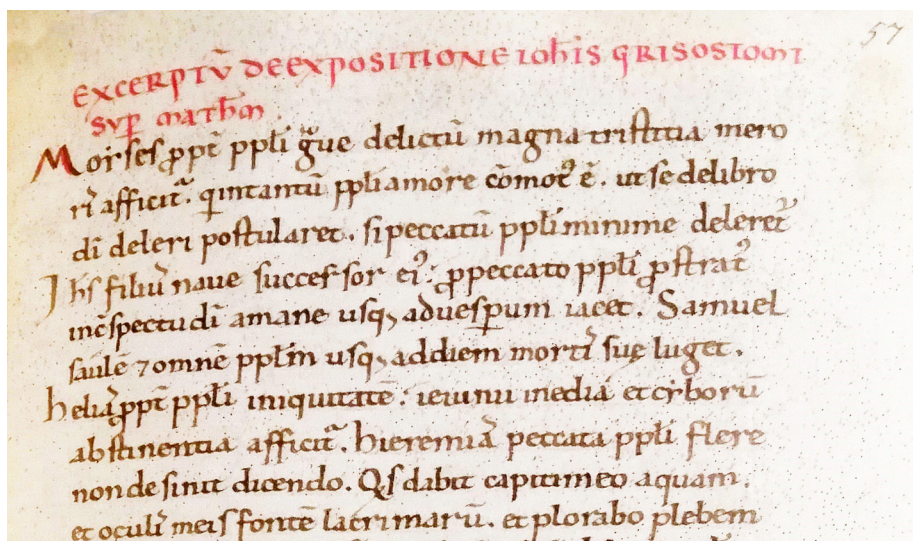 57
EXCERPTU̅ DE EXPOSITIONE IOħIS QRISOSTOMI
SUP̅ MATħM
Moẏses ꝓpt̅ ppłi gᵃue delictu̅ magna tristitia mero
ri afficit᷑. qui intantu̅ ppłi amore co̅mot᷑ e̅. ut se delibro
di̅ deleri postularet. si peccatu̅ ppłi minime deleret᷑
Iħs filiu᷒ naue successor ei᷒. ꝓ peccato ppłi ꝓstrat᷒
inc̅spectu di̅ amane usq; aduesꝑum iacet. Samuel
saule̅ ⁊ omne̅ ppłm usq; addiem morti᷒ suę luget.
helia᷒ ꝓpt̅ ppłi iniquitate̅. ieiunii inedia et cyboru̅
abstinentia afficit᷑. hieremia᷒ peccata ppłi flere
non desinit dicendo. Qs dabit capiti meo aquam.
et oculi᷒ meis fonte̅ lacrimaru̅. et plorabo plebem